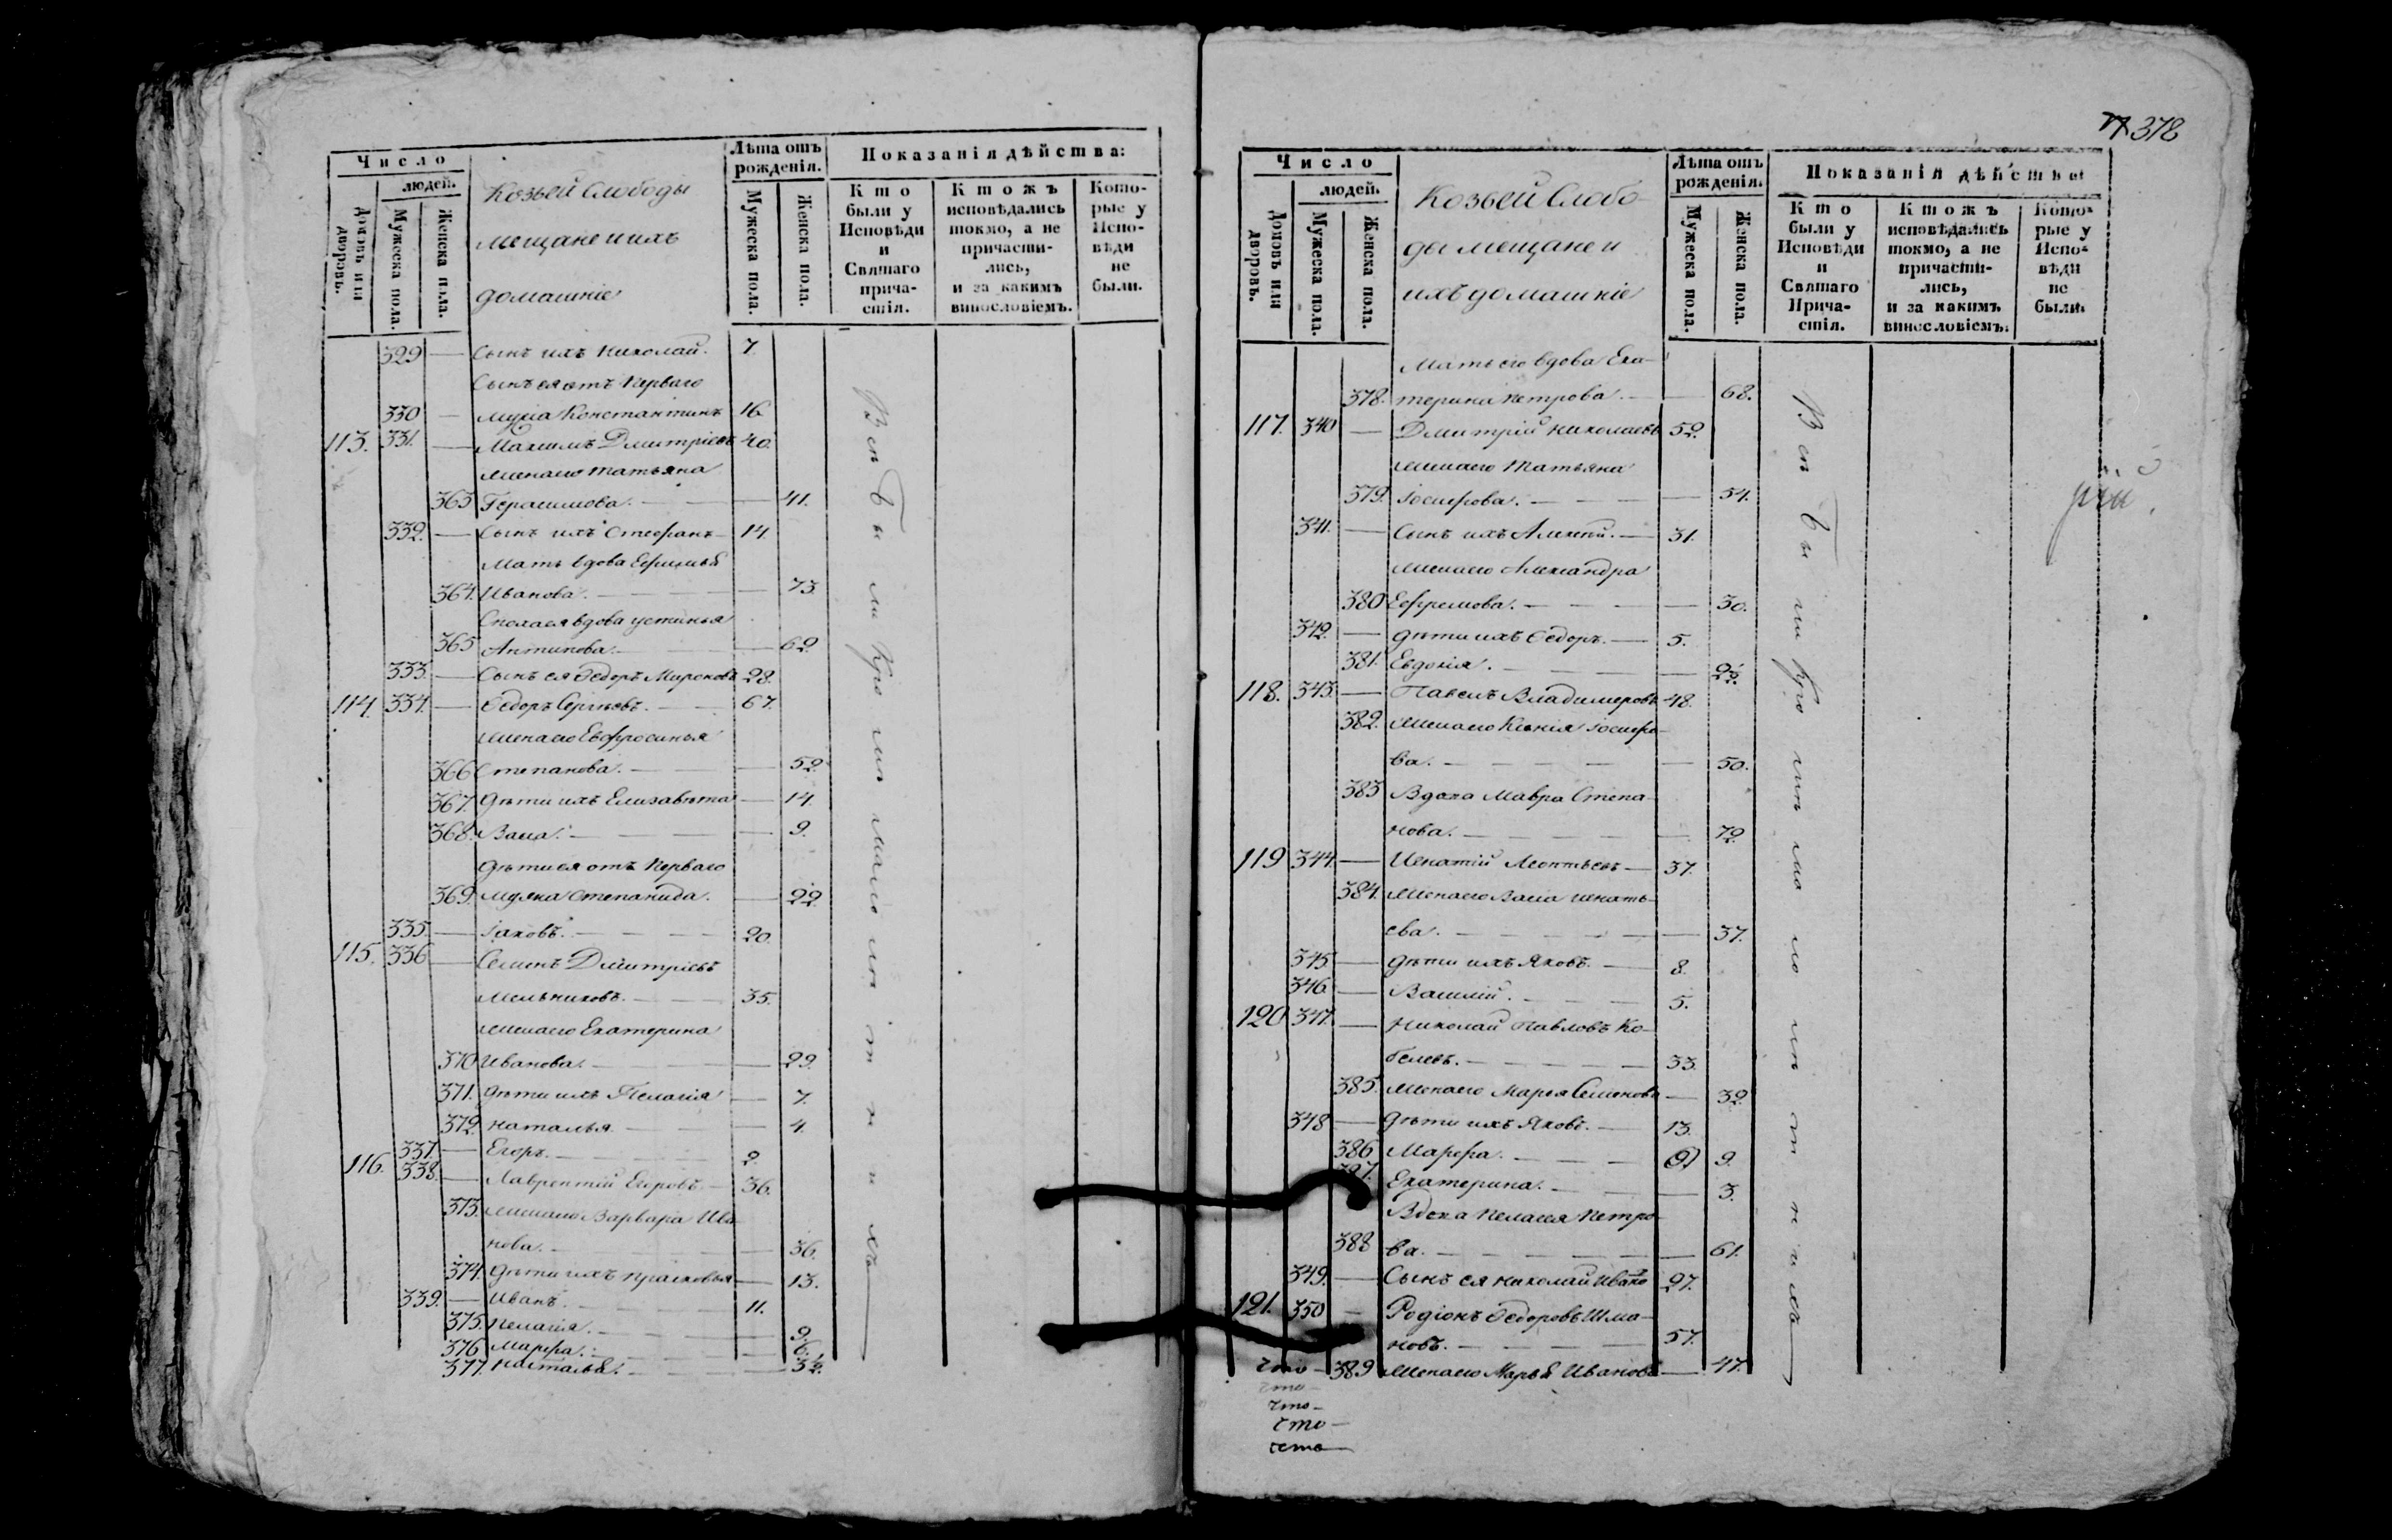 Число
людей.
Домовъ или дворовъ.
Мужеска пола.
Женска пола.
Козьей Слободы
мещане и ихъ
домашніе
Лѣта отъ рожденія.
Мужеска пола.
Женска пола.
Показанія дѣйства:
Кто были у Исповѣди и Святаго причастія.
Ктожъ исповѣдались токмо, а не причастились, и за какимъ винословіемъ.
Которые у Исповѣди не были.
329 — Сынъ ихъ Николай. 7.
Сынъ ея отъ перваго
330 — мужа Константинъ 16.
113. 331. — Максимъ Дмитріевъ 40.
жена его Татьяна
363 Герасимова. — 41.
332. — Сынъ ихъ Стефанъ — 14.
Мать вдова Ефимья
364. Иванова. — 73.
вдова Устинья
365 Антипова. — 62.
333. — Сынъ ея Ѳедоръ Мироновъ 28.
114. 334. — Ѳедоръ Сергѣевъ. — 67.
жена его Евфросинья
366 Степанова. — 52.
367. дѣти ихъ Елизавѣта — 14.
368. Васса. — 9.
дѣти ея отъ перваго
369. мужа Степанида. — 22.
335. — Іаковъ. — 20.
115. 336 — Семенъ Дмитріевъ
Мельниковъ. — 35.
жена его Екатерина
370 Иванова. — 29.
371. дѣти ихъ Пелагія — 7.
372. Наталья. — 4.
337. — Егоръ. — 2.
116. 338. — Лаврентій Егоровъ. — 36.
373. жена его Варвара Ива-
нова. — 36.
374. дѣти ихъ Прасковья — 13.
339. — Иванъ. — 11.
375. Пелагія. — 9.
376 Марфа. — 6.
377. Наталья. — 3
378
Число
людей.
Домовъ или дворовъ.
Мужеска пола.
Женска пола.
Козьей Слобо-
ды мещане и
ихъ домашніе
Лѣта отъ рожденія.
Мужеска пола.
Женска пола.
Показанія дѣйства:
Кто были у Исповѣди и Святаго Причастія.
Ктожъ исповѣдались токмо, а не причастились, и за какимъ винословіемъ.
Которые у Исповѣди не были.
Мать его вдова Ека-
378. терина Петрова. — 68.
117. 340 — Дмитрій Николаевъ 52.
жена его Татьяна
379. Іосифова. — 54.
341. — Сынъ ихъ Алексѣй. — 31.
жена его Александра
380 Ефремова. — 30.
342. — дѣти ихъ Ѳедоръ. — 5.
381. Евдокія. — 2
118. 343. — Павелъ Владимеровъ 48.
382. жена его Ксенія Іосифо-
ва. — 50.
383 Вдова Мавра Степа-
нова. — 72.
119 344. — Игнатій Леонтьевъ — 37.
384. жена его Васса Игнать-
ева. — 37.
345 — дѣти ихъ Яковъ. — 8.
346. — Василій. — 5.
120 347. — Николай Павловъ Ко-
белевъ. — 33.
385. жена его Марья Семенова — 32.
348 — дѣти ихъ Яковъ. — 13.
386 Марфа. — 9.
387. Екатерина. — 3.
Вдова Пелагея Петро-
388 ва. — 61.
349. — Сынъ ея Николай Ивано 27.
121. 350 — Родіонъ Ѳедоровъ Шма-
новъ. — 57.
389 жена его Марья Иванова — 47.